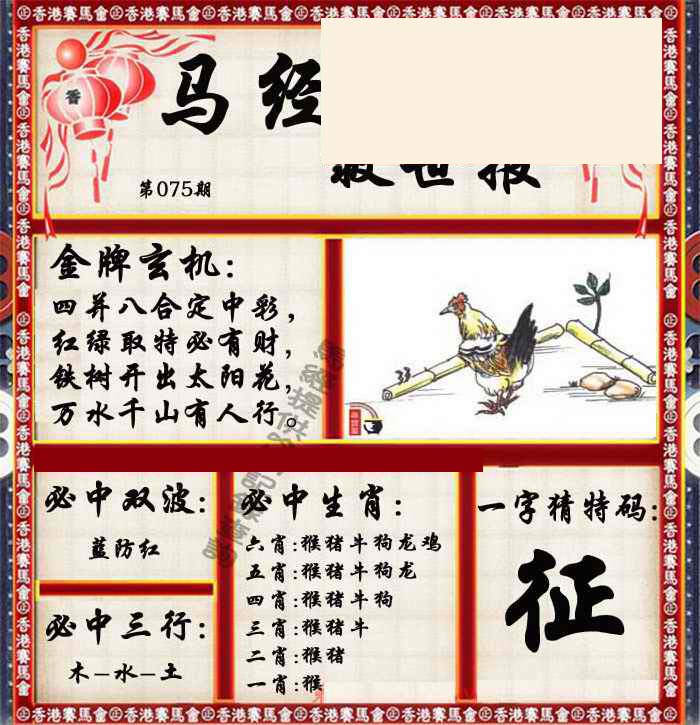 马经
救世报
第075期
金牌玄机:
四并八合定中彩,
红绿取特必有财,
铁树开出太阳花,
万水千山有人行。
必中双波:
蓝防红
必中三行:
木-水-土
必中生肖:
六肖:猴猪牛狗龙鸡
五肖:猴猪牛狗龙
四肖:猴猪牛狗
三肖:猴猪牛
二肖:猴猪
一肖:猴
一字猜特码:
征
香港赛馬會
香